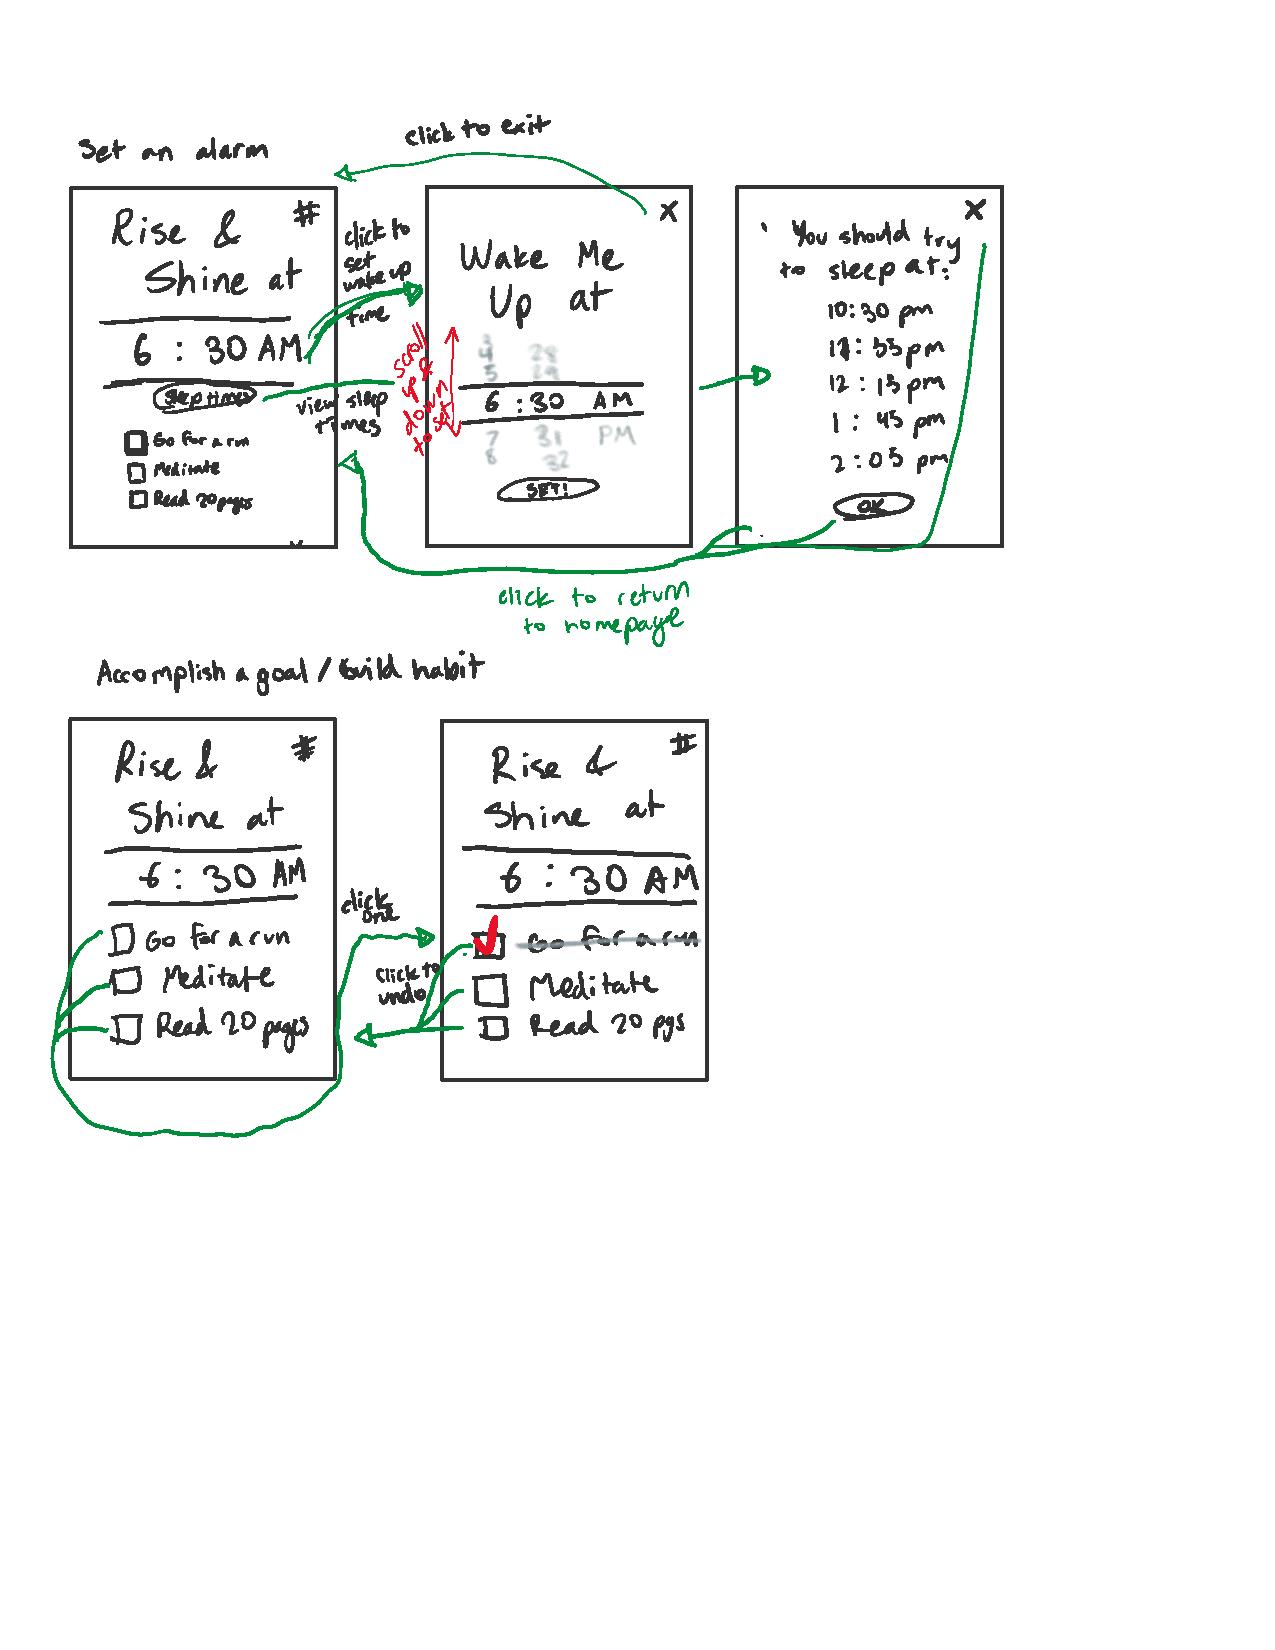 click to exit
Set an alarm
Rise & #
Shine at
6 : 30 AM
sleep times
Go for a run
Meditate
Read 20 pages
click to
set
wake up
time
view sleep
times
scroll
up &
down
to set
X
Wake Me
Up at
3
4 28
5 29
6 : 30 AM
7 31 PM
8 32
SET!
X
You should try
to sleep at:
10:30 pm
55 pm
12 : 15 pm
1 : 45 pm
2 : 05 pm
OK
click to return
to homepage
Accomplish a goal / build habit
Rise & #
Shine at
6 : 30 AM
Go for a run
Meditate
Read 20 pages
click
one
click to
undo
Rise & #
Shine at
6 : 30 AM
Go for a run
Meditate
Read 20 pgs